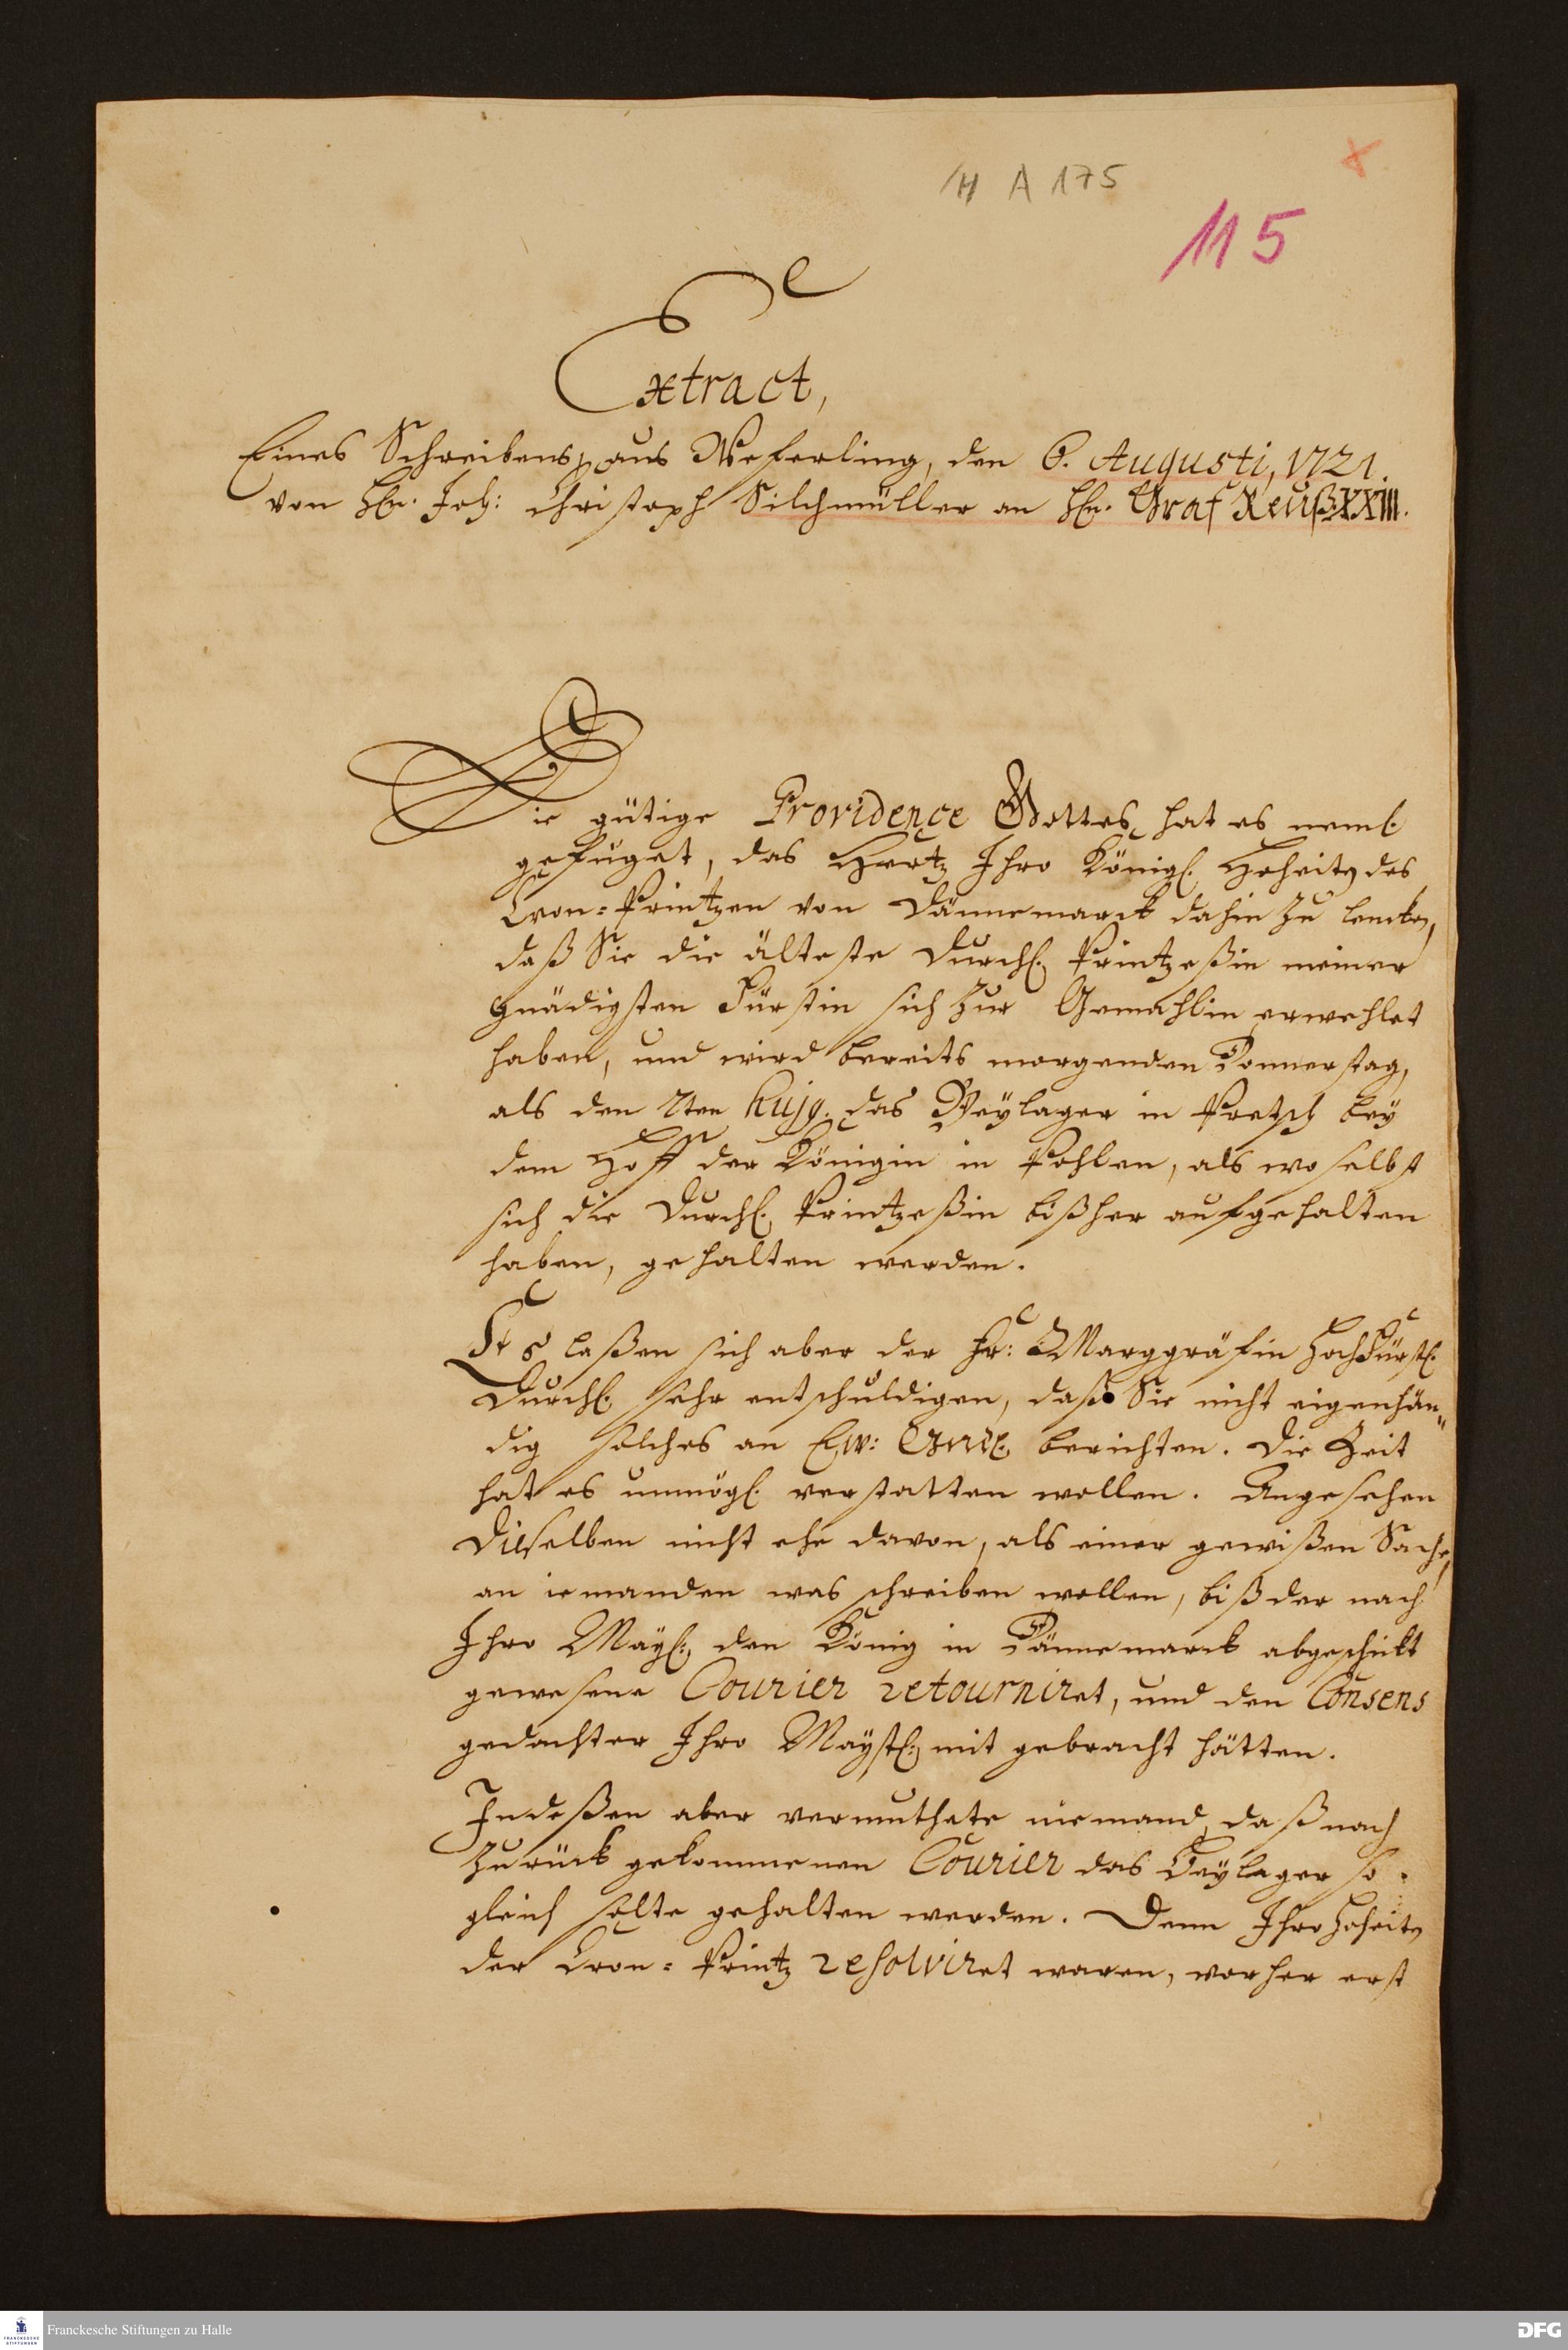 H A 175
115
Extract,
Eines Schreibens, aus Weferling, den 6. Augusti, 1721.
von Hn. Joh: Christoph Silchmüller an Hn. Graf Reuß XXIII.
Die gütige Providence Gottes hat es neml.
gefüget, das Hertz Ihro Königl. Hoheit des
Cron-Printzen von Dännemarck dahin zu lencken,
daß Sie die älteste Durchl. Printzeßin meiner
gnädigsten Fürstin sich zur Gemahlin erwehlet
haben, und wird bereits morgenden Donnerstag,
als den 7ten hujq. das Beylager in Pretsch bey
dem Hoff der Königin in Pohlen, als woselbst
sich die Durchl. Printzeßin bißher aufgehalten
haben, gehalten werden.
Es laßen sich aber der Fr: Marggräfin Hochfürstl.
Durchl. sehr entschuldigen, daß Sie nicht eigenhän„
dig solches an Ew: Gnd. berichten. Die Zeit
hat es unmögl. verstatten wollen. Angesehen
Dieselben nicht ehe davon, als einer gewißen Sache,
an iemanden was schreiben wollen, biß der nach
Ihro Mayt. den König in Dännemarck abgeschickt
gewesene Courier retourniret, und den Consens
gedachter Ihro Mayst. mit gebracht hätten.
Indeßen aber vermuthete niemand, daß nach
zurück gekommenen Courier das Beylager so-
gleich solte gehalten werden. Denn Ihro Hoheit
der Cron-Printz resolviret waren, vorher erst
Franckesche Stiftungen zu Halle
FRANCKESCHE STIFTUNGEN
DFG